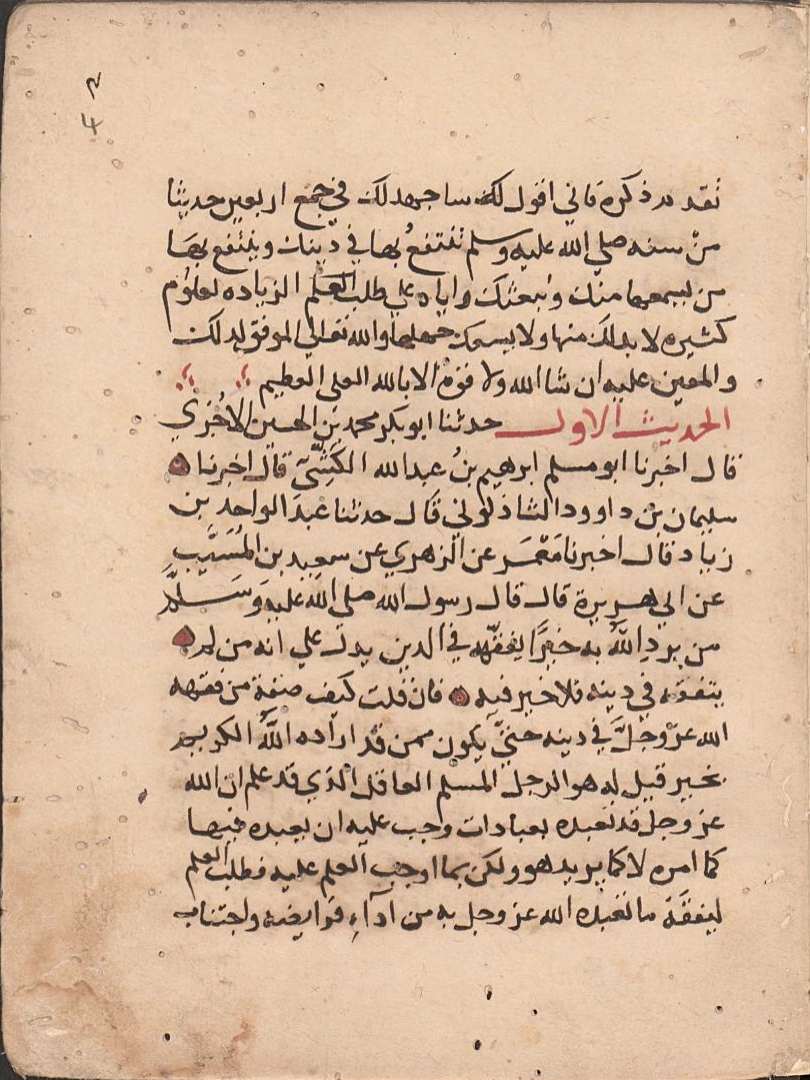 ٣
٤
تقدم ذكره فاني اقول لك ساجهد لك في جمع اربعين حديثا
من سنه صلي الله عليه وسلم تنتفعُ بها في دينك وينتفع بها
من يسمعها منك وابعثك واياه علي طلب العلم الزياده لعلوم
كثيره لا بد لك منها ولا يسعك جهلها والله تعالي الموفق لذلك
والمعين عليه ان شا الله ولا قوة الا بالله العلي العظيم
الحديث الاول حدثنا ابو بكر محمد بن الحسين الاجري
قال اخبرنا ابو مسلم ابرهيم بنُ عبد الله الكَشّيّ قال اخبرنا
سليمان بن داوود الشاذكوني قال حدثنا عبد الواحد بن
زياد قال اخبرنا مَعْمَر عن الزهري عن سعيد بن المُسَيَّبِ
عن ابي هريرة قال قال رسول الله صلي الله عليه وَسَلَّم
من يردِ اللّٰهُ به خيرًا يفقّهه في الدين يدلّ علي انه من لم
يتفقه في دينه فلا خير فيه فان قلت كيف صفة من فقهه
الله عزّ وجلَّ في دينه حتيّ يكون ممن قد اراده اللّٰهُ الكريم
بخير قيل له هو الرجل المسلم العاقل الذي قد علم ان الله
عز وجل قد تعبده بعبادات وجب عليه ان يعبده فيها
كما امره لا كما يريد هو ولكن بما اوجب العلم عليه فطلب العلم
ليفقَّهَ ما تعبده الله عز وجل به من اَدآءِ فرايضه واجتناب